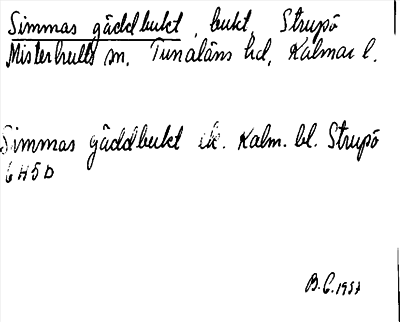 Simmas gäddbukt, bukt, Strupö
Misterhults sn, Tunaläns hd, Kalmar l.
Simmas gäddbukt ek. Kalm. bl. Strupö
6H5D
B.C. 1957